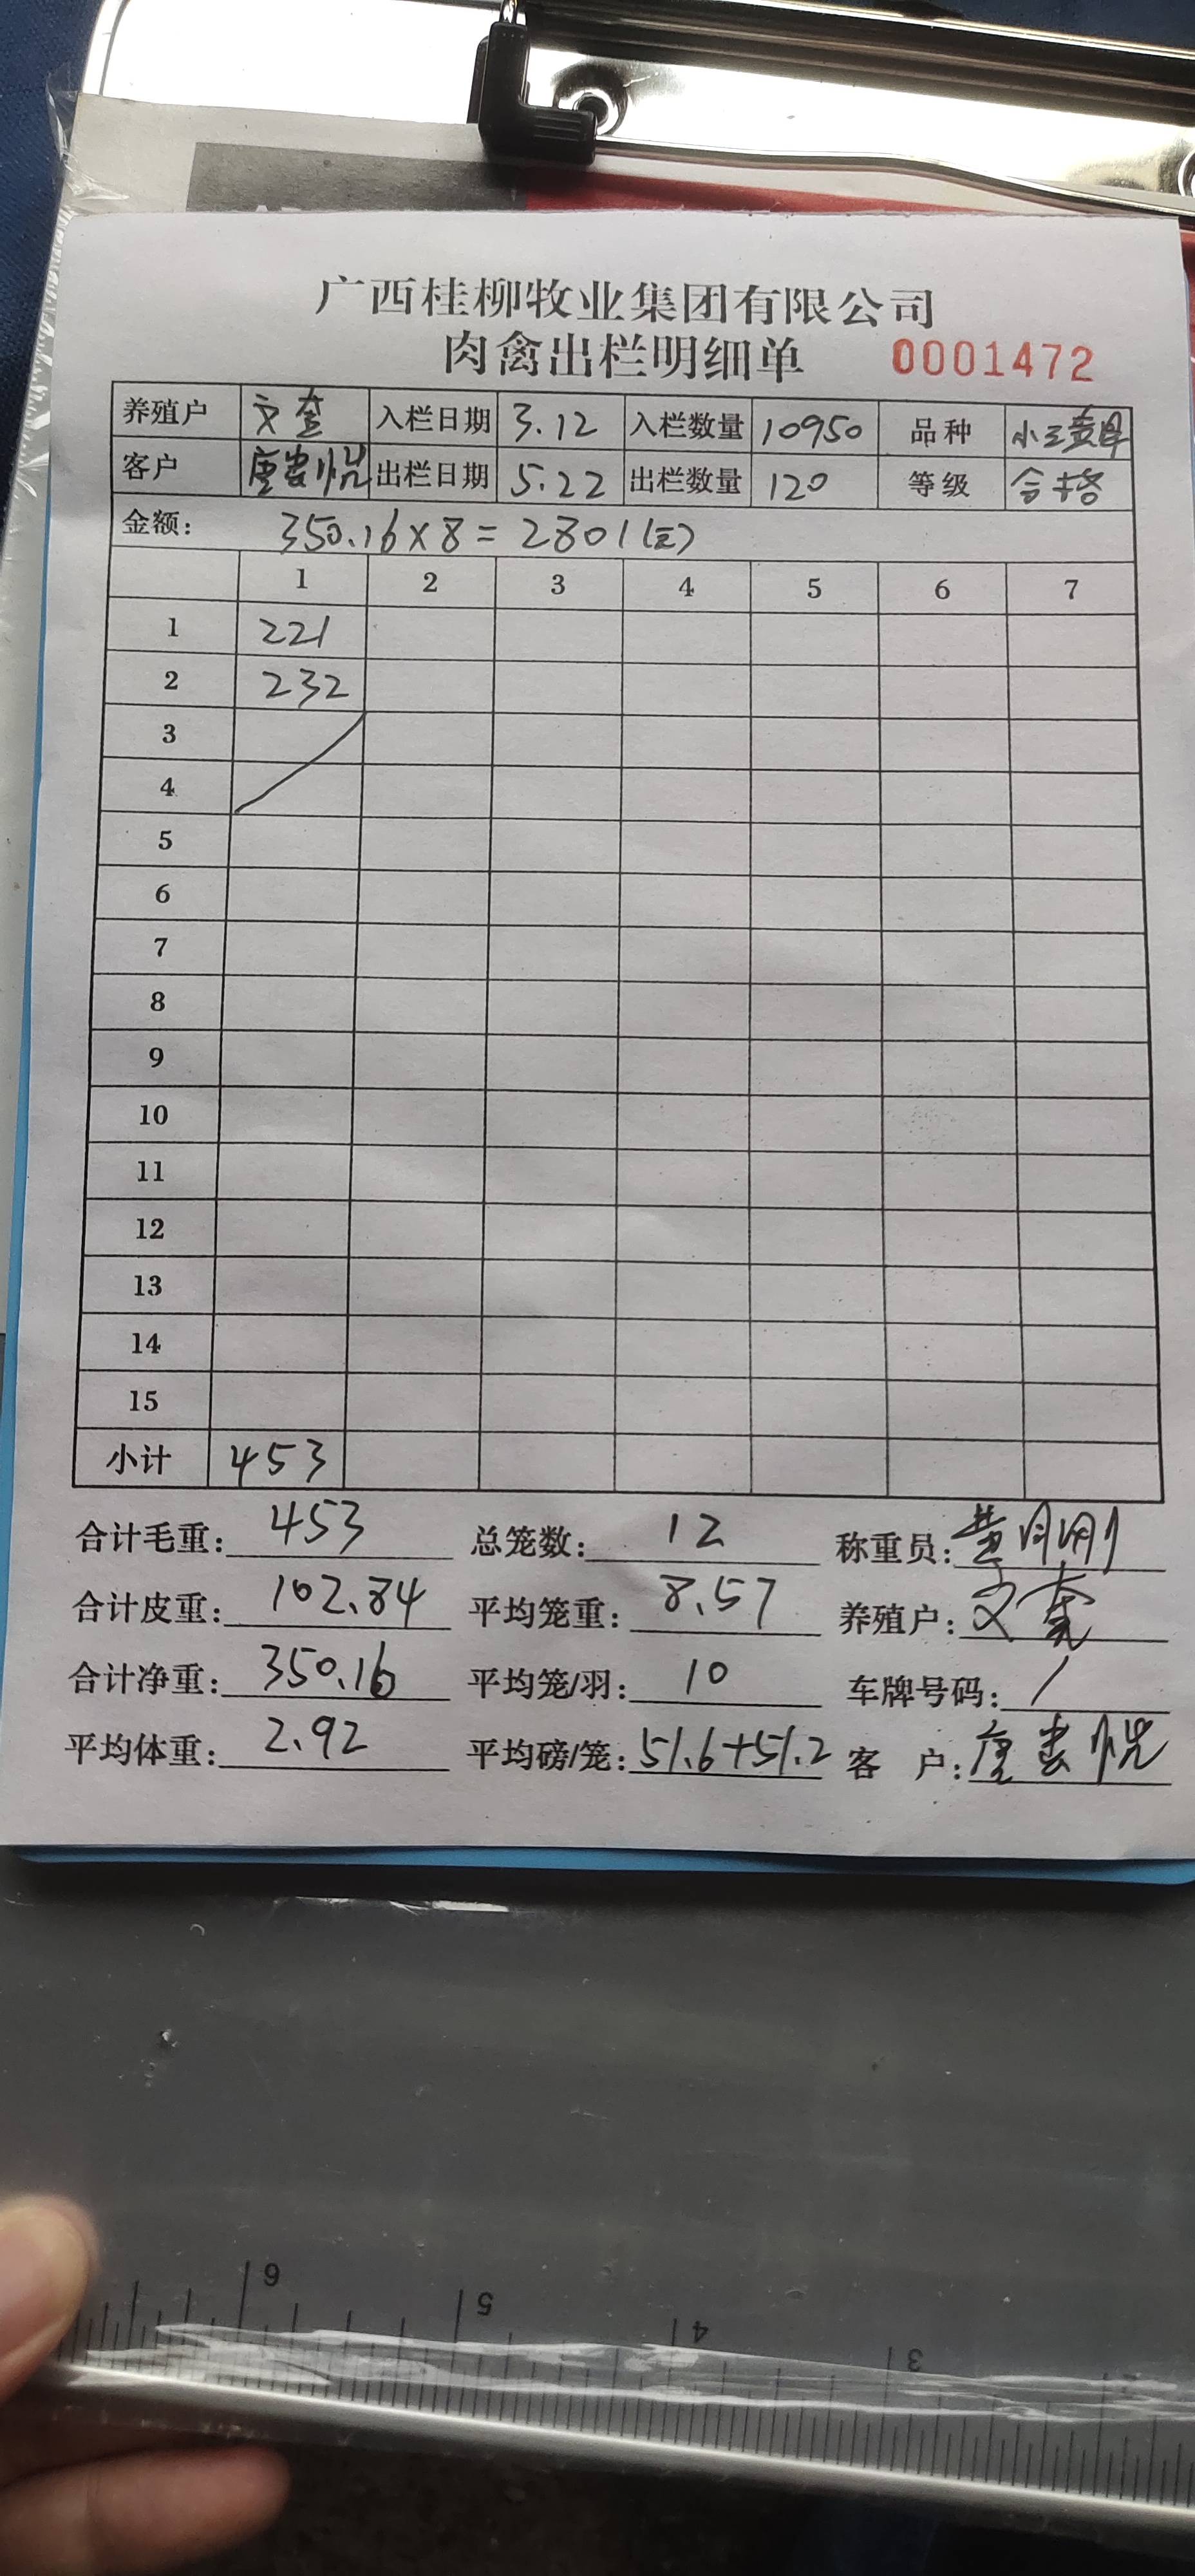 广西桂柳牧业集团有限公司
肉禽出栏明细单 0001472
养殖户 文奎 入栏日期 3.12 入栏数量 10950 品种 小三黄母
客户 出栏日期 5.22 出栏数量 120 等级 合格
金额: 350.16×8=2801(元)
1 2 3 4 5 6 7
1 221
2 232
3
4
5
6
7
8
9
10
11
12
13
14
15
小计 453
合计毛重: 453 总笼数: 12 称重员:
合计皮重: 102.84 平均笼重: 8.57 养殖户: 文奎
合计净重: 350.16 平均笼/羽: 10 车牌号码: /
平均体重: 2.92 平均磅/笼: 51.6+51.2 客 户:
6 5 4 3